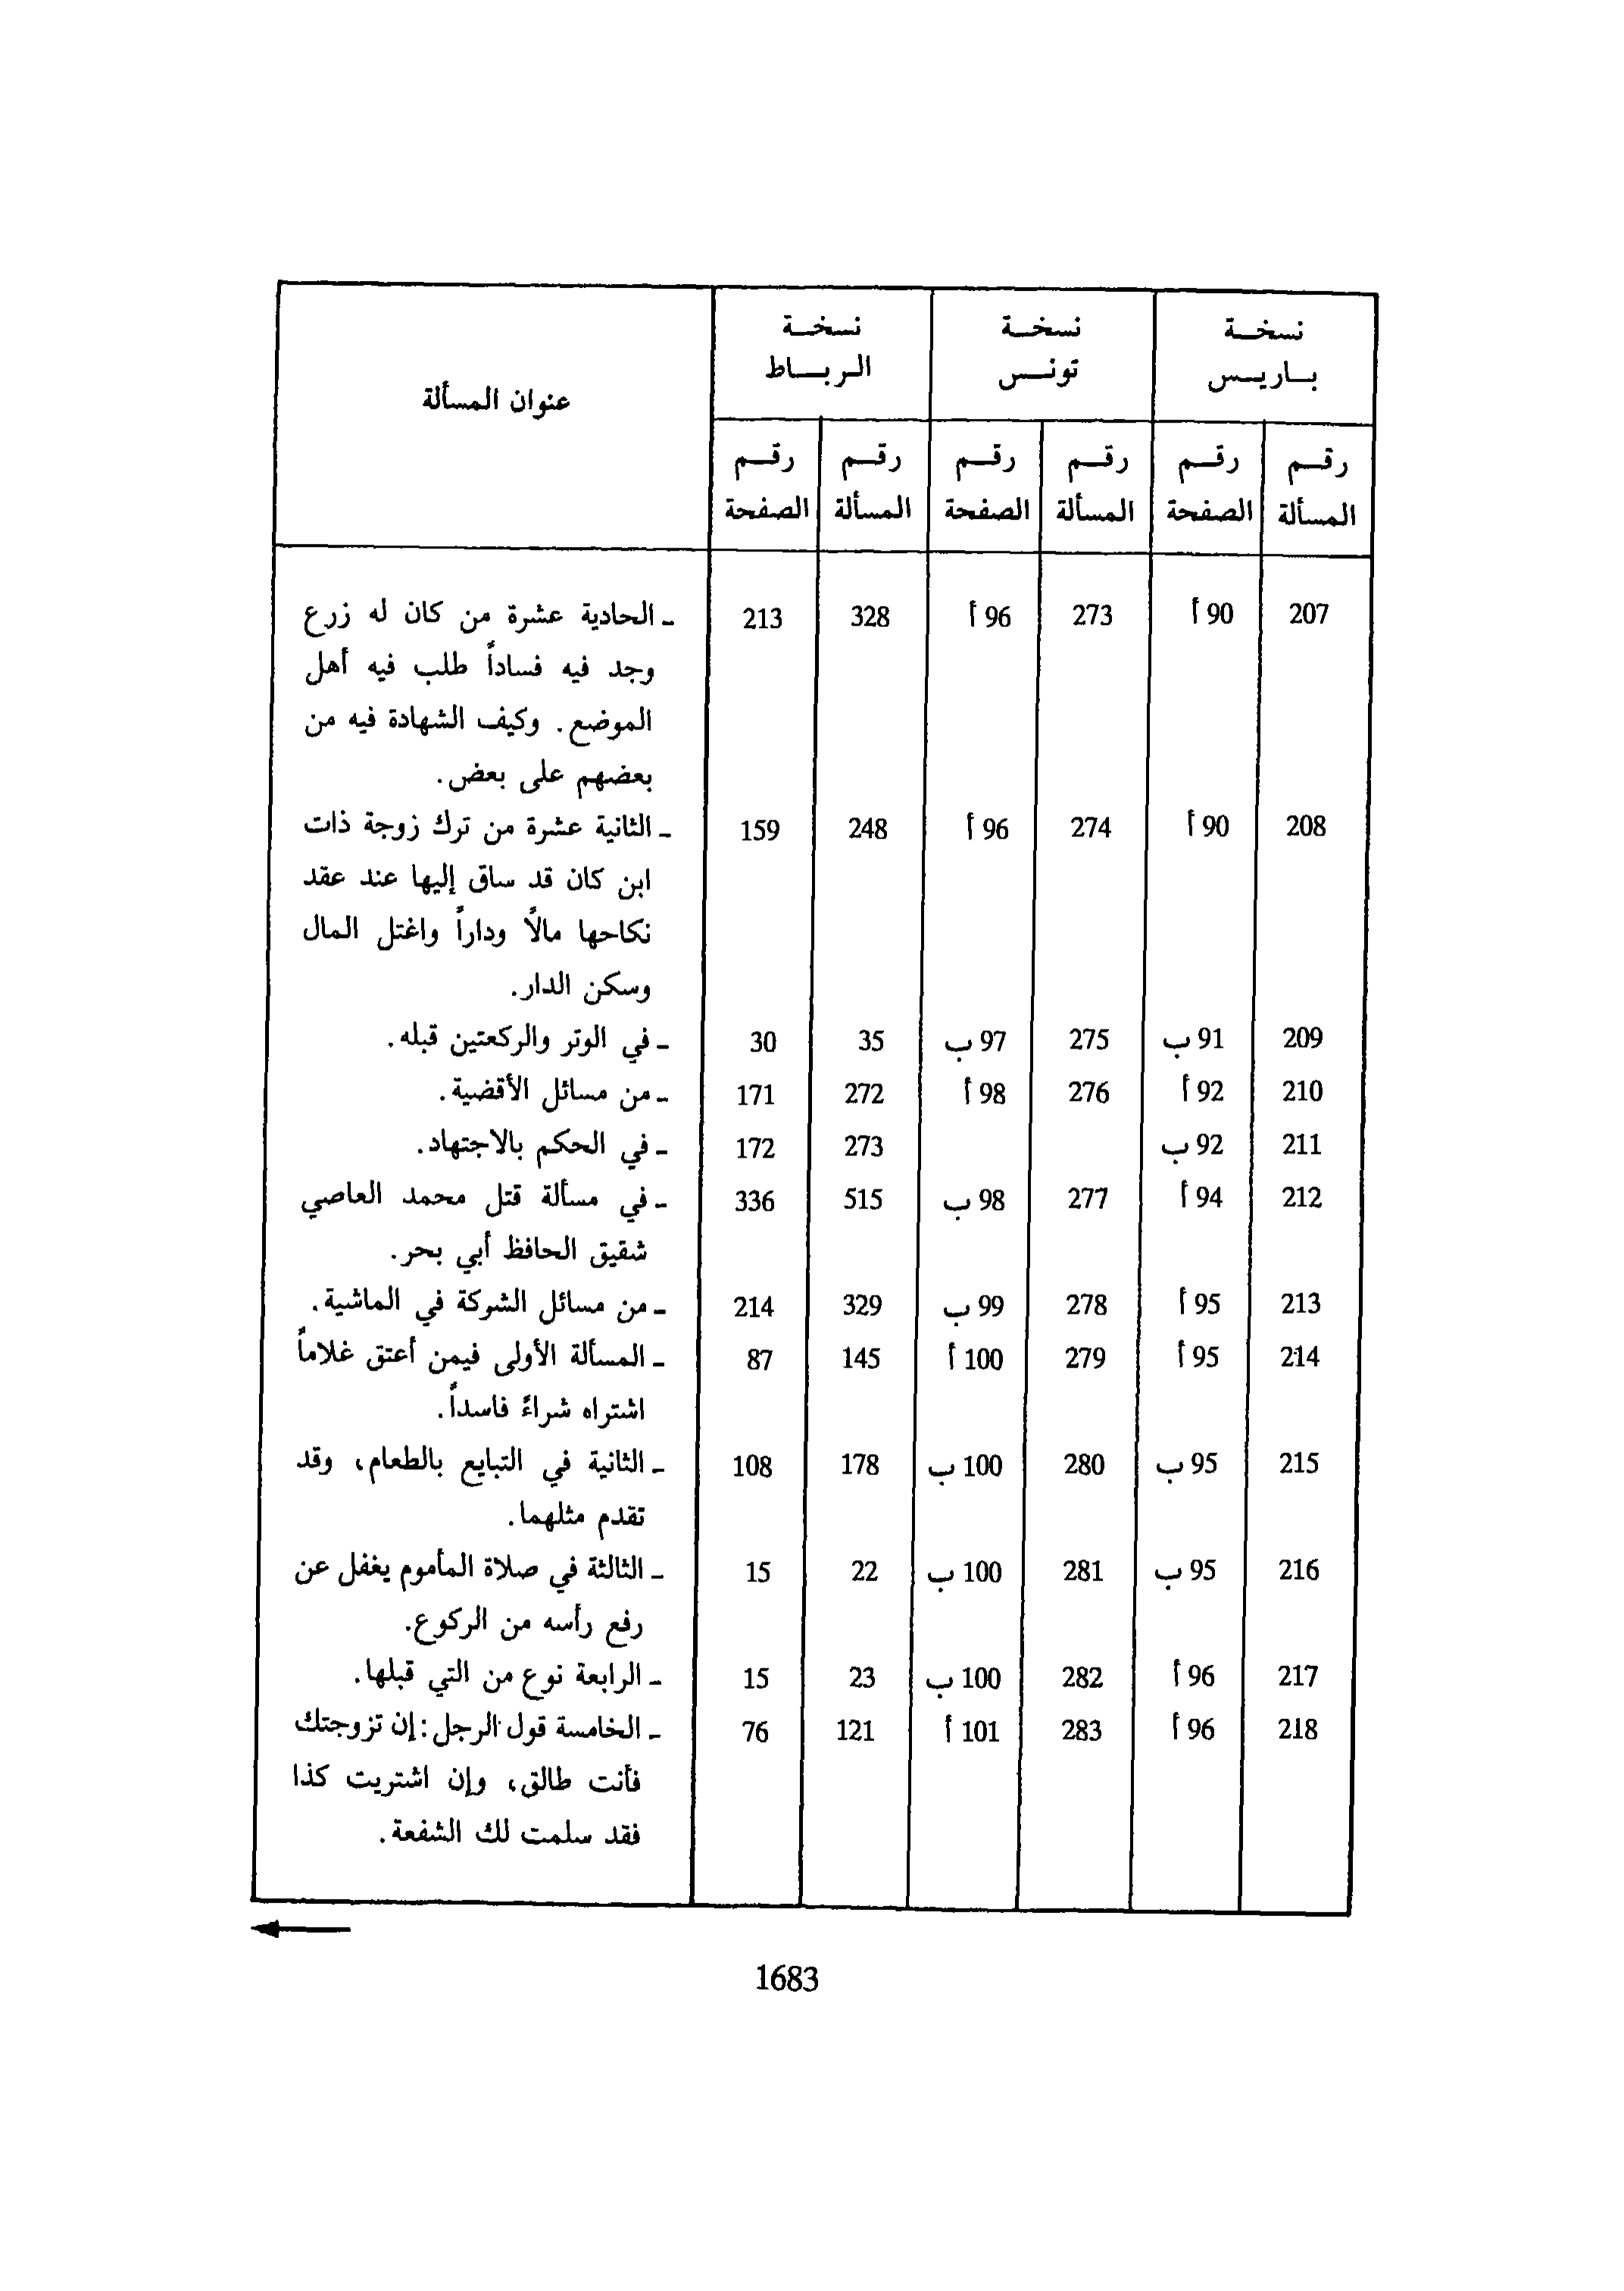 نسخة نسخة نسخة
باريس تونس الرباط
عنوان المسألة
رقم رقم رقم رقم رقم رقم
المسألة الصفحة المسألة الصفحة المسألة الصفحة
207 90 أ 273 96 أ 328 213 - الحادية عشرة من كان له زرع
وجد فيه فساداً طلب فيه أهل
الموضع. وكيف الشهادة فيه من
بعضهم على بعض.
208 90 أ 274 96 أ 248 159 - الثانية عشرة من ترك زوجة ذات
ابن كان قد ساق إليها عند عقد
نكاحها مالاً وداراً واغتل المال
وسكن الدار.
209 91 ب 275 97 ب 35 30 - في الوتر والركعتين قبله.
210 92 أ 276 98 أ 272 171 - من مسائل الأقضية.
211 92 ب 273 172 - في الحكم بالاجتهاد.
212 94 أ 277 98 ب 515 336 - في مسألة قتل محمد العاصي
شقيق الحافظ أبي بحر.
213 95 أ 278 99 ب 329 214 - من مسائل الشركة في الماشية.
214 95 أ 279 100 أ 145 87 - المسألة الأولى فيمن أعتق غلاماً
اشتراه شراءً فاسداً.
215 95 ب 280 100 ب 178 108 - الثانية في التبايع بالطعام، وقد
تقدم مثلهما.
216 95 ب 281 100 ب 22 15 - الثالثة في صلاة المأموم يغفل عن
رفع رأسه من الركوع.
217 96 أ 282 100 ب 23 15 - الرابعة نوع من التي قبلها.
218 96 أ 283 101 أ 121 76 - الخامسة قول الرجل: إن تزوجتك
فأنت طالق، وإن اشتريت كذا
فقد سلمت لك الشفعة.
1683